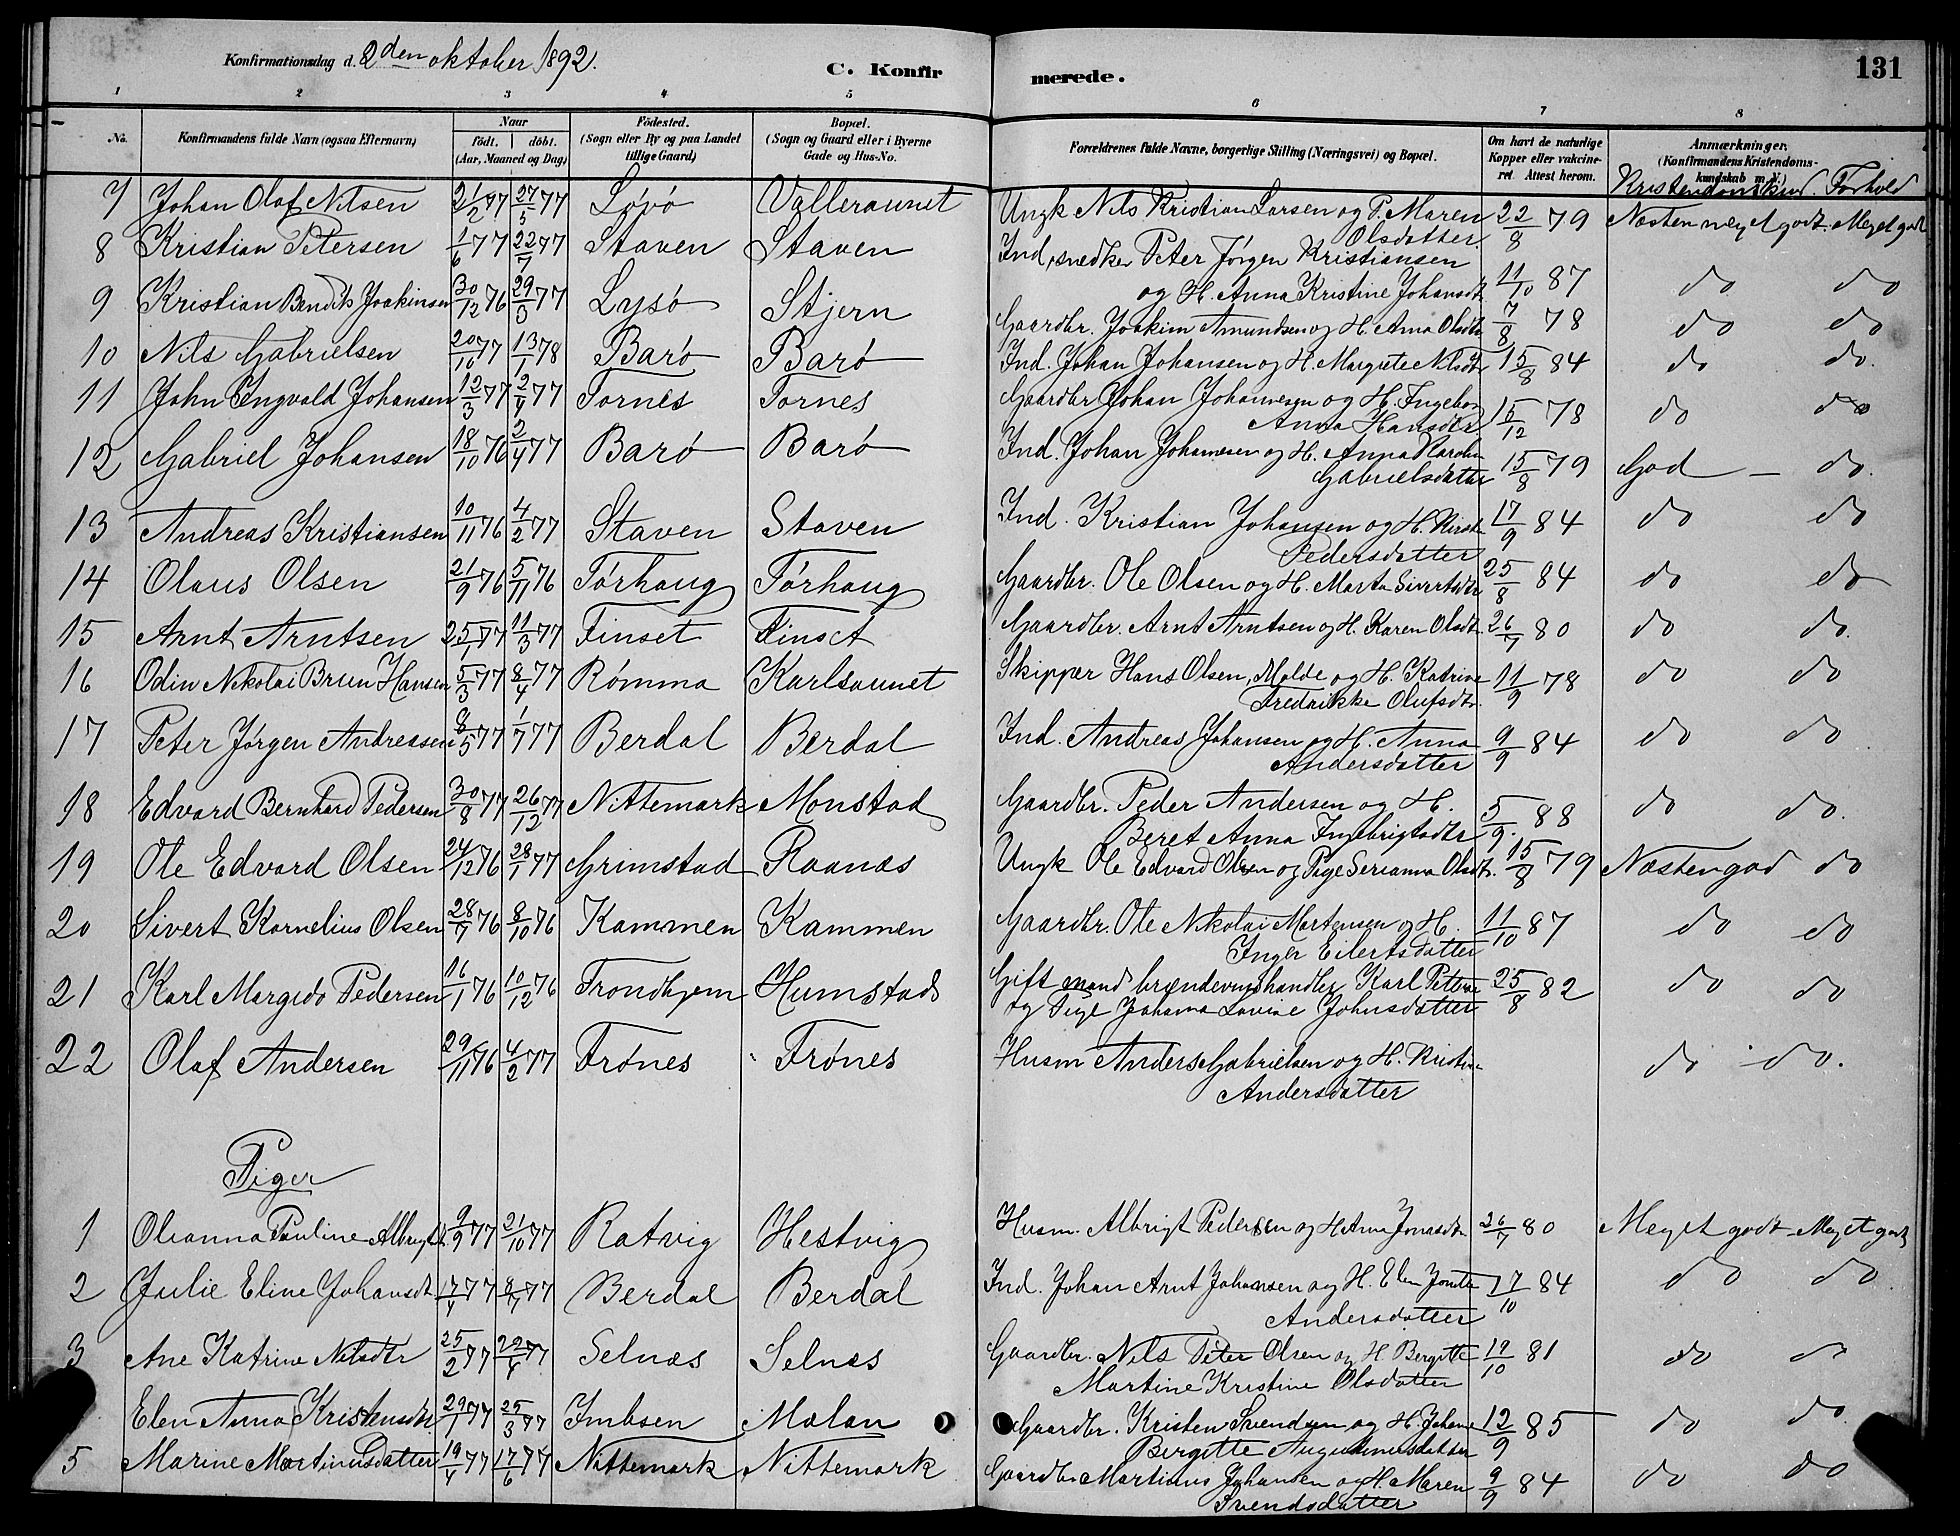 Konfirmationsdag d. 2den oktober 1892.
C. Konfir merede. 131
1 2 3 4 5 6 7 8
No. Konfirmandens fulde Navn (ogsaa Efternavn) Naar födt. döbt. (Aar, Maaned og Dag) Födested. (Sogn eller By og paa Landet tillige Gaard) Bopæl. (Sogn og Gaard eller i Byerne Gade og Hus-No. Forældrenes fulde Navne, borgerlige Stilling (Næringsvei) og Bopæl. Om havt de naturlige Kopper eller vakcineret. Attest herom. Anmærkninger. (Konfirmandens Kristendomskundskab m. v.)
Kristendomskund. Forhold
7 Johan Olaf Nilsen 21/2 77 27/5 77 Lövö Valleraunet Ungk Nils Kristian Larsen og P. Maren 22/8 79 Næsten meget godt. Meget godt
Olsdatter
8 Kristian Petersen 1/6 77 22/7 77 Staven Staven Ind., snedker Peter Jörgen Kristiansen
og H. Anna Kristine Johansdt. 11/10 87 do do
9 Kristian Bendik Joakinsen 30/12 76 29/3 77 Lysö Stjern Gaardbr. Joakim Amundsen og H. Anna Olsdtr 7/8 78 do do
10 Nils Gabrielsen 20/10 77 13/1 78 Barö Barö Ind. Johan Johansen og H. Margrete Nilsdtr 15/8 84 do do.
11 John Ingvald Johansen 12/3 77 2/4 77 Tornes Tornes Gaardbr Johan Johannesen og H. Ingebor
Anna Hansdtr 15/12 78 do do
12 Gabriel Johansen 18/10 76 2/4 77 Barö Barö Ind. Johan Johannesen og H. Anna Karolin
Gabrielsdatter 15/8 79 God — do.
13 Andreas Kristiansen 10/11 76 4/2 77 Staven Staven Ind. Kristian Johansen og H. Kirst 17/9 84 do do
Pedersdatter
14 Olaus Olsen 21/9 76 5/11 76 Törhaug Törhaug Gaardbr. Ole Olsen og H. Marta Sivertsdtr 25/8 84 do do
15 Arnt Arntsen 25/1 77 11/3 77 Finset Finset Gaardbr. Arnt Arntsen og H. Karen Olsdt. 26/7 80 do do.
16 Odin Nikolai Brun Hansen 5/3 77 8/4 77 Römma Karlsaunet Skipper Hans Olsen, Molde og H. Katrine
Fredrikke Olufsdtr. 11/9 78 do do
17 Peter Jörgen Andreasen 8/5 77 1/7 77 Berdal Berdal Ind. Andreas Johansen og H. Anna 9/9 84 do do
Andersdatter
18 Edvard Bernhard Pedersen 30/8 77 26/12 77 Nittemark Monstad Gaardbr. Peder Andersen og H. 5/9. 88 do do.
Beret Anna Ingebrigtsdtr
19 Ole Edvard Olsen 24/12 76 28/1 77 Grimstad Raanæs Ungk Ole Edvard Olsen og Pige Serianna Olsdt. 15/8 79 Næsten god do
20 Sivert Kornelius Olsen 28/7 76 8/10 76 Kammen Kammen Gaardbr. Ole Nikolai Mortensen og H. 11/10 87 do do
Inger Eilertsdatter
21 Karl Margido Pedersen 16/1 76 10/12 76 Trondhjem Humstad Gift mand brændevinshandler Karl Petter 25/8 82 do do
og Pige Johanna Lovise Johnsdatter
22 Olaf Andersen 29/11 76 4/2 77 Frönes Frönes Husm Anders Gabrielsen og H. Kristin do do.
Andersdatter
Piger
1 Olianna Pauline Albrigtdt. 9/9 77 21/10 77 Ratvig Hestvig Husm. Albrigt Pedersen og H Anna Jonasdtr 26/7 80 Meget godt - Meget godt
2 Julie Eline Johansdt. 17/4 77 8/7 77 Berdal Berdal Ind. Johan Arnt Johansen og H. Elen 17/10 84 do do
Andersdatter
3 Ane Katrine Nilsdtr 25/2 77 22/4 77 Selnæs Selnæs Gaardbr. Nils Peter Olsen og H Bergitte 19/10 81 do do
Martine Kristine Olsdatter
Elen Anna Kristensdtr 29/1 77 25/3 77 Imbsen Mælan Gaardbr. Kristen Svendsen og H. Johane 12/9 85 do do
Bergitte Augustinusdatter
5 Marine Martinusdatter 19/4 77 17/6 77 Nittemark Nittemark Gaardbr Martinus Johansen og H. Maren 9/9 84 do do
Svendsdatter